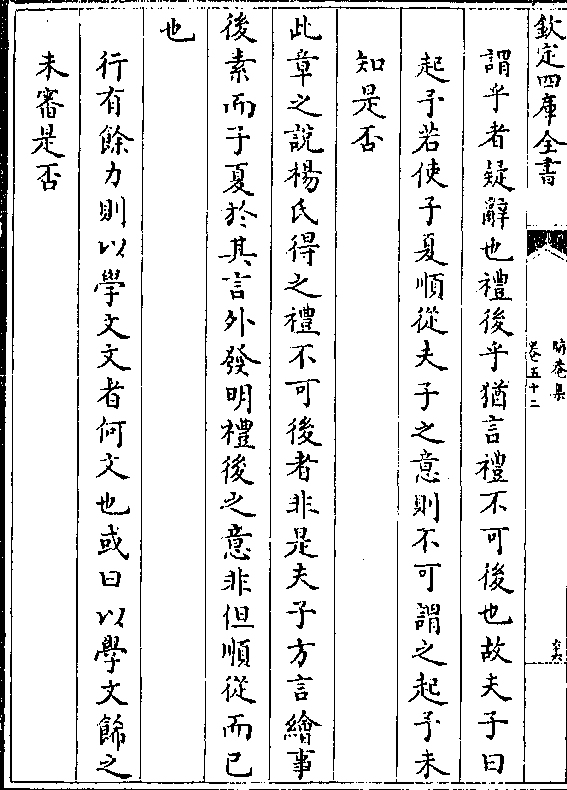 欽定四庫全書
晦庵集
卷五十二
謂乎者疑辭也禮後乎猶言禮不可後也故夫子曰
起予若使子夏順從夫子之意則不可謂之起予未
知是否
此章之說楊氏得之禮不可後者非是夫子方言繪事
後素而子夏於其言外發明禮後之意非但順從而已
也
行有餘力則以學文文者何文也或曰以學文餙之
未審是否